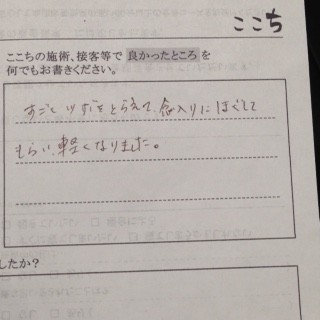 ここち
ここちの施術、接客等で 良かったところ を
何でもお書きください。
をとらえて、念入りにほぐして
もらい、軽くなりました。
したか?